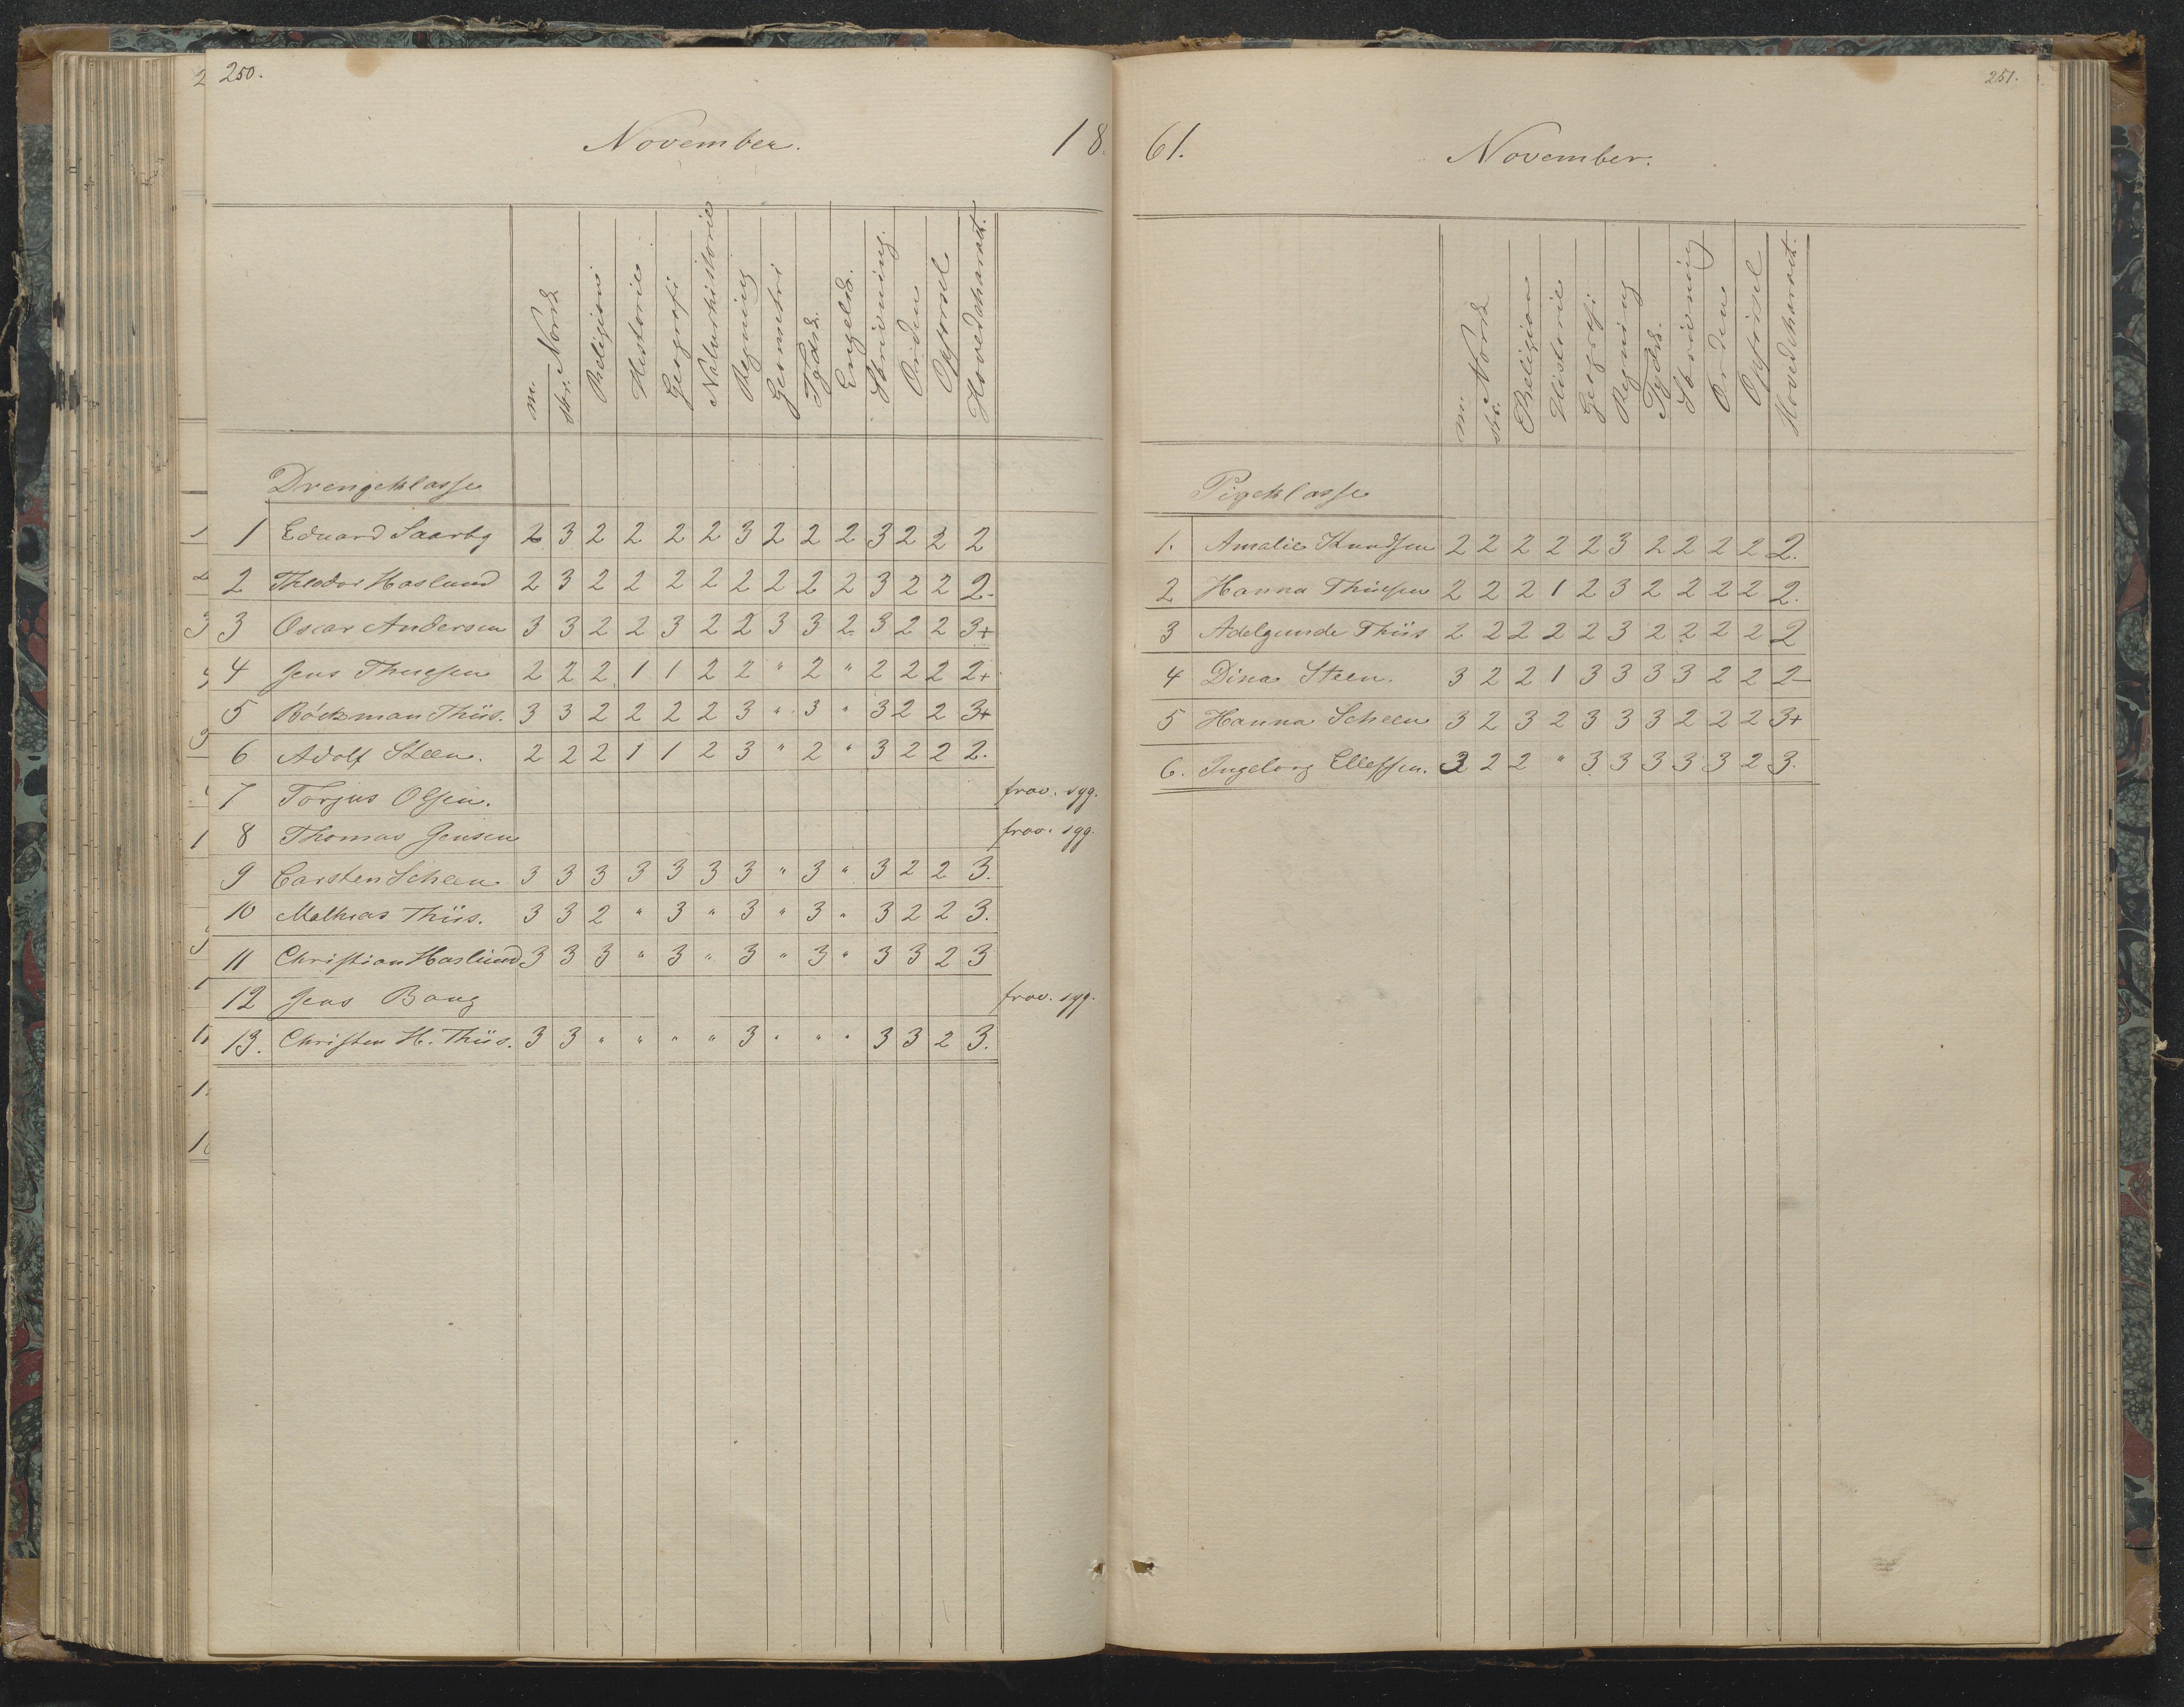 250.
November.
18
m. Norsk
skr. Religion Historie Geografi Naturhistorie Regning Geometri Tydsk. Engelsk. Skrivning. Orden Opførsel Hovedcharact.
Drengeklasse
1 Eduard Saarby 2 3 2 2 2 2 3 2 2 2 3 2 2 2
2 Theodor Haslund 2 3 2 2 2 2 2 2 2 2 3 2 2 2-
3 Oscar Andersen 3 3 2 2 3 2 2 3 3 2 3 2 2 3+
4 Jens Thuesen 2 2 2 1 1 2 2 " 2 " 2 2 2 2+
5 Böckman Thiis. 3 3 2 2 2 2 3 " 3 " 3 2 2 3+
6 Adolf Steen. 2 2 2 1 1 2 3 " 2 " 3 2 2 2.
7 Torjus Olsen. frav. syg.
8 Thomas Jensen frav. syg.
9 Carsten Scheen 3 3 3 3 3 3 3 " 3 " 3 2 2 3.
10 Mathias Thiis. 3 3 2 " 3 " 3 " 3 " 3 2 2 3.
11 Christian Haslund 3 3 3 " 3 " 3 " 3 " 3 3 2 3
12 Jens Bang frav. syg.
13. Christen H. Thiis. 3 3 " " " " 3 " " " 3 3 2 3.
251.
61.
November.
m. Norsk
skr. Religion Historie Geografi Regning Tydsk. Skrivning Orden Opførsel Hovedcharact.
Pigeklasse
1. Amalie Knudsen 2 2 2 2 2 3 2 2 2 2 2.
2 Hanna Thuesen 2 2 2 1 2 3 2 2 2 2 2.
3 Adelgunde Thiis 2 2 2 2 2 3 2 2 2 2 2
4 Dina Steen. 3 2 2 1 3 3 3 3 2 2 2-
5 Hanna Scheen 3 2 3 2 3 3 3 2 2 2 3+
6. Ingeborg Ellefsen. 3 2 2 " 3 3 3 3 3 2 3.